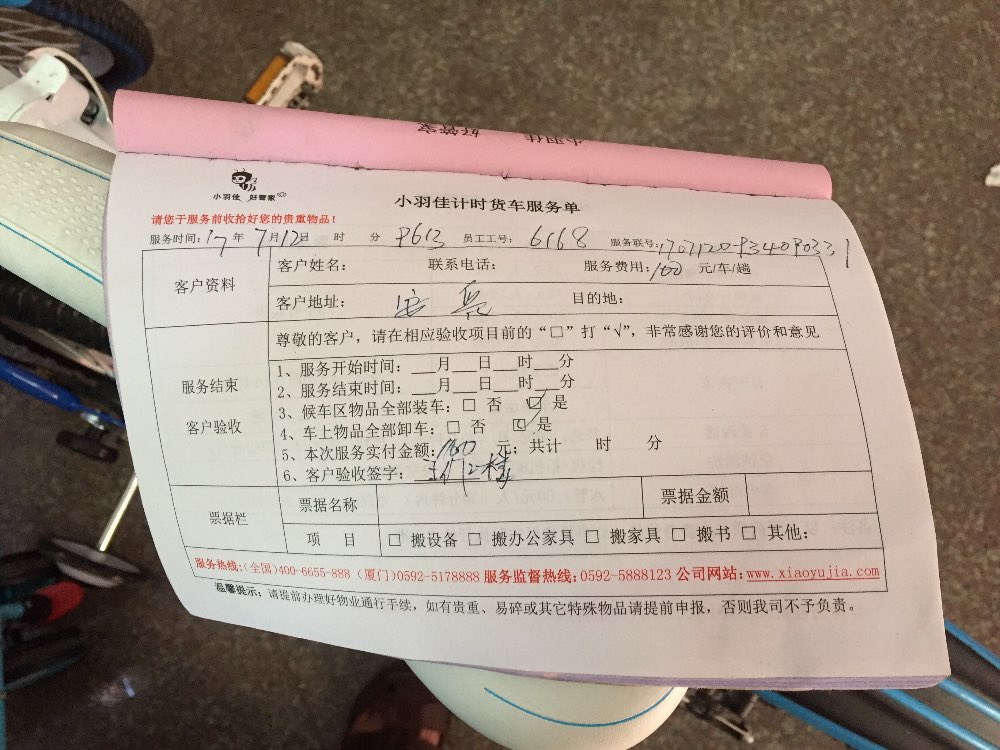 小羽佳 好管家
小羽佳 好管家
小羽佳计时货车服务单
请您于服务前收拾好您的贵重物品！
服务时间：17年7月12日 时 分 P613 员工工号： 6168 服务联号：
客户资料
客户姓名： 联系电话： 服务费用：100 元/车/趟
客户地址： 目的地：
服务结束
客户验收
尊敬的客户，请在相应验收项目前的“□”打“√”，非常感谢您的评价和意见
1、服务开始时间：__月__日__时__分
2、服务结束时间：__月__日__时__分
3、候车区物品全部装车：□ 否 ☑ 是
4、车上物品全部卸车：□ 否 ☑ 是
5、本次服务实付金额：100 元；共计 时 分
6、客户验收签字：
票据栏
票据名称 票据金额
项 目 □ 搬设备 □ 搬办公家具 □ 搬家具 □ 搬书 □ 其他：
服务热线：(全国)400-6655-888 (厦门)0592-5178888 服务监督热线：0592-5888123 公司网站：www.xiaoyujia.com
温馨提示：请提前办理好物业通行手续，如有贵重、易碎或其它特殊物品请提前申报，否则我司不予负责。